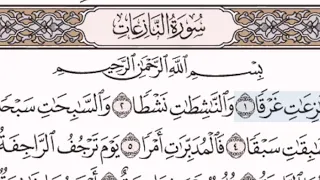 سُورَةُ النَّازِعَاتِ
بِسْمِ اللَّهِ الرَّحْمَٰنِ الرَّحِيمِ
زِعَاتِ غَرْقًا ١ وَالنَّاشِطَاتِ نَشْطًا ٢ وَالسَّابِحَاتِ سَبْحًا
ابِقَاتِ سَبْقًا ٤ فَالْمُدَبِّرَاتِ أَمْرًا ٥ يَوْمَ تَرْجُفُ الرَّاجِفَةُ